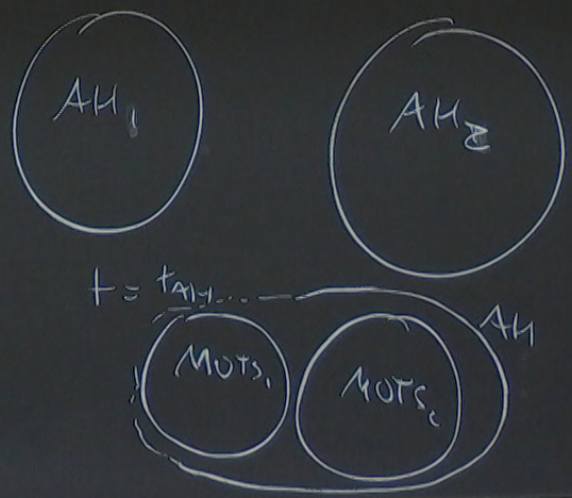 AH₁
AH₂
t = t_AH
AH
MOTS₁
MOTS₂